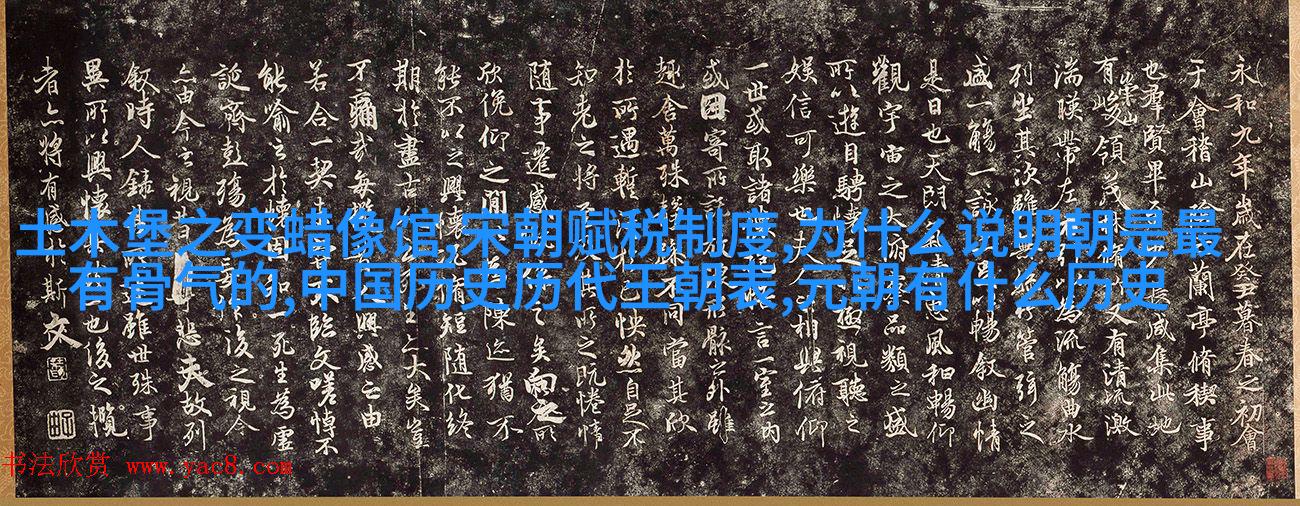 土木堡之变蜡像馆,宋朝赋税制度,为什么说明朝是最
有骨气的,中国历史历代王朝表,元朝有什么历史
永和九年歲在癸丑暮春之初會
于會稽山蘭亭脩稧事
也羣賢畢咸集此地
有崇山峻領茂又有清流激
湍暎帶左為流觴曲水
列坐其次雖無管弦之
盛一觴一詠暢敘幽情
是日也天朗惠風和暢仰
觀宇宙之大俯品類之盛
所以遊目騁懷足極視聽之
娛信可樂也夫人相與俯仰
一世或取諸言一室之內
或因寄所形骸之外雖
趣舍萬殊不同當其欣
於所遇暫怏然自足不
知老之將所之既惓情
隨事遷感之矣向之所
欣俛仰之閒陳迹猶不
能不以之興懷脩短隨化終
期於盡古大矣豈
不痛哉每興感之由
若合一契臨文嗟悼不
能喻之於懷固一死生為虛
誕齊彭殤為後之視今
亦由今之視昔悲夫故列
敘時人錄雖世殊事
異所以興懷也後之攬
者亦將有感於斯文
书法欣赏 www.yac8.com